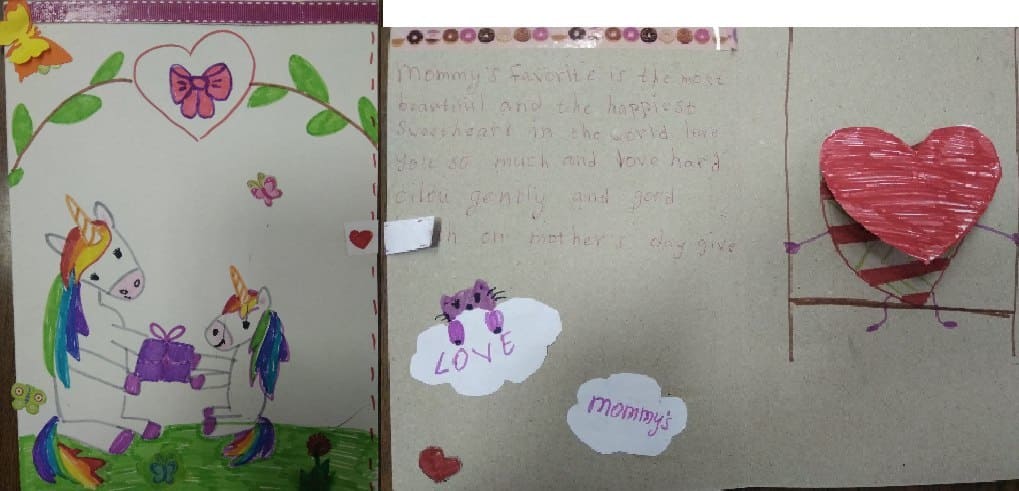 mommy's favorite is the most
beautiful and the happiest
sweetheart in the world love
you so much and love hard
gently and good
on mother's day give
LOVE
mommy's